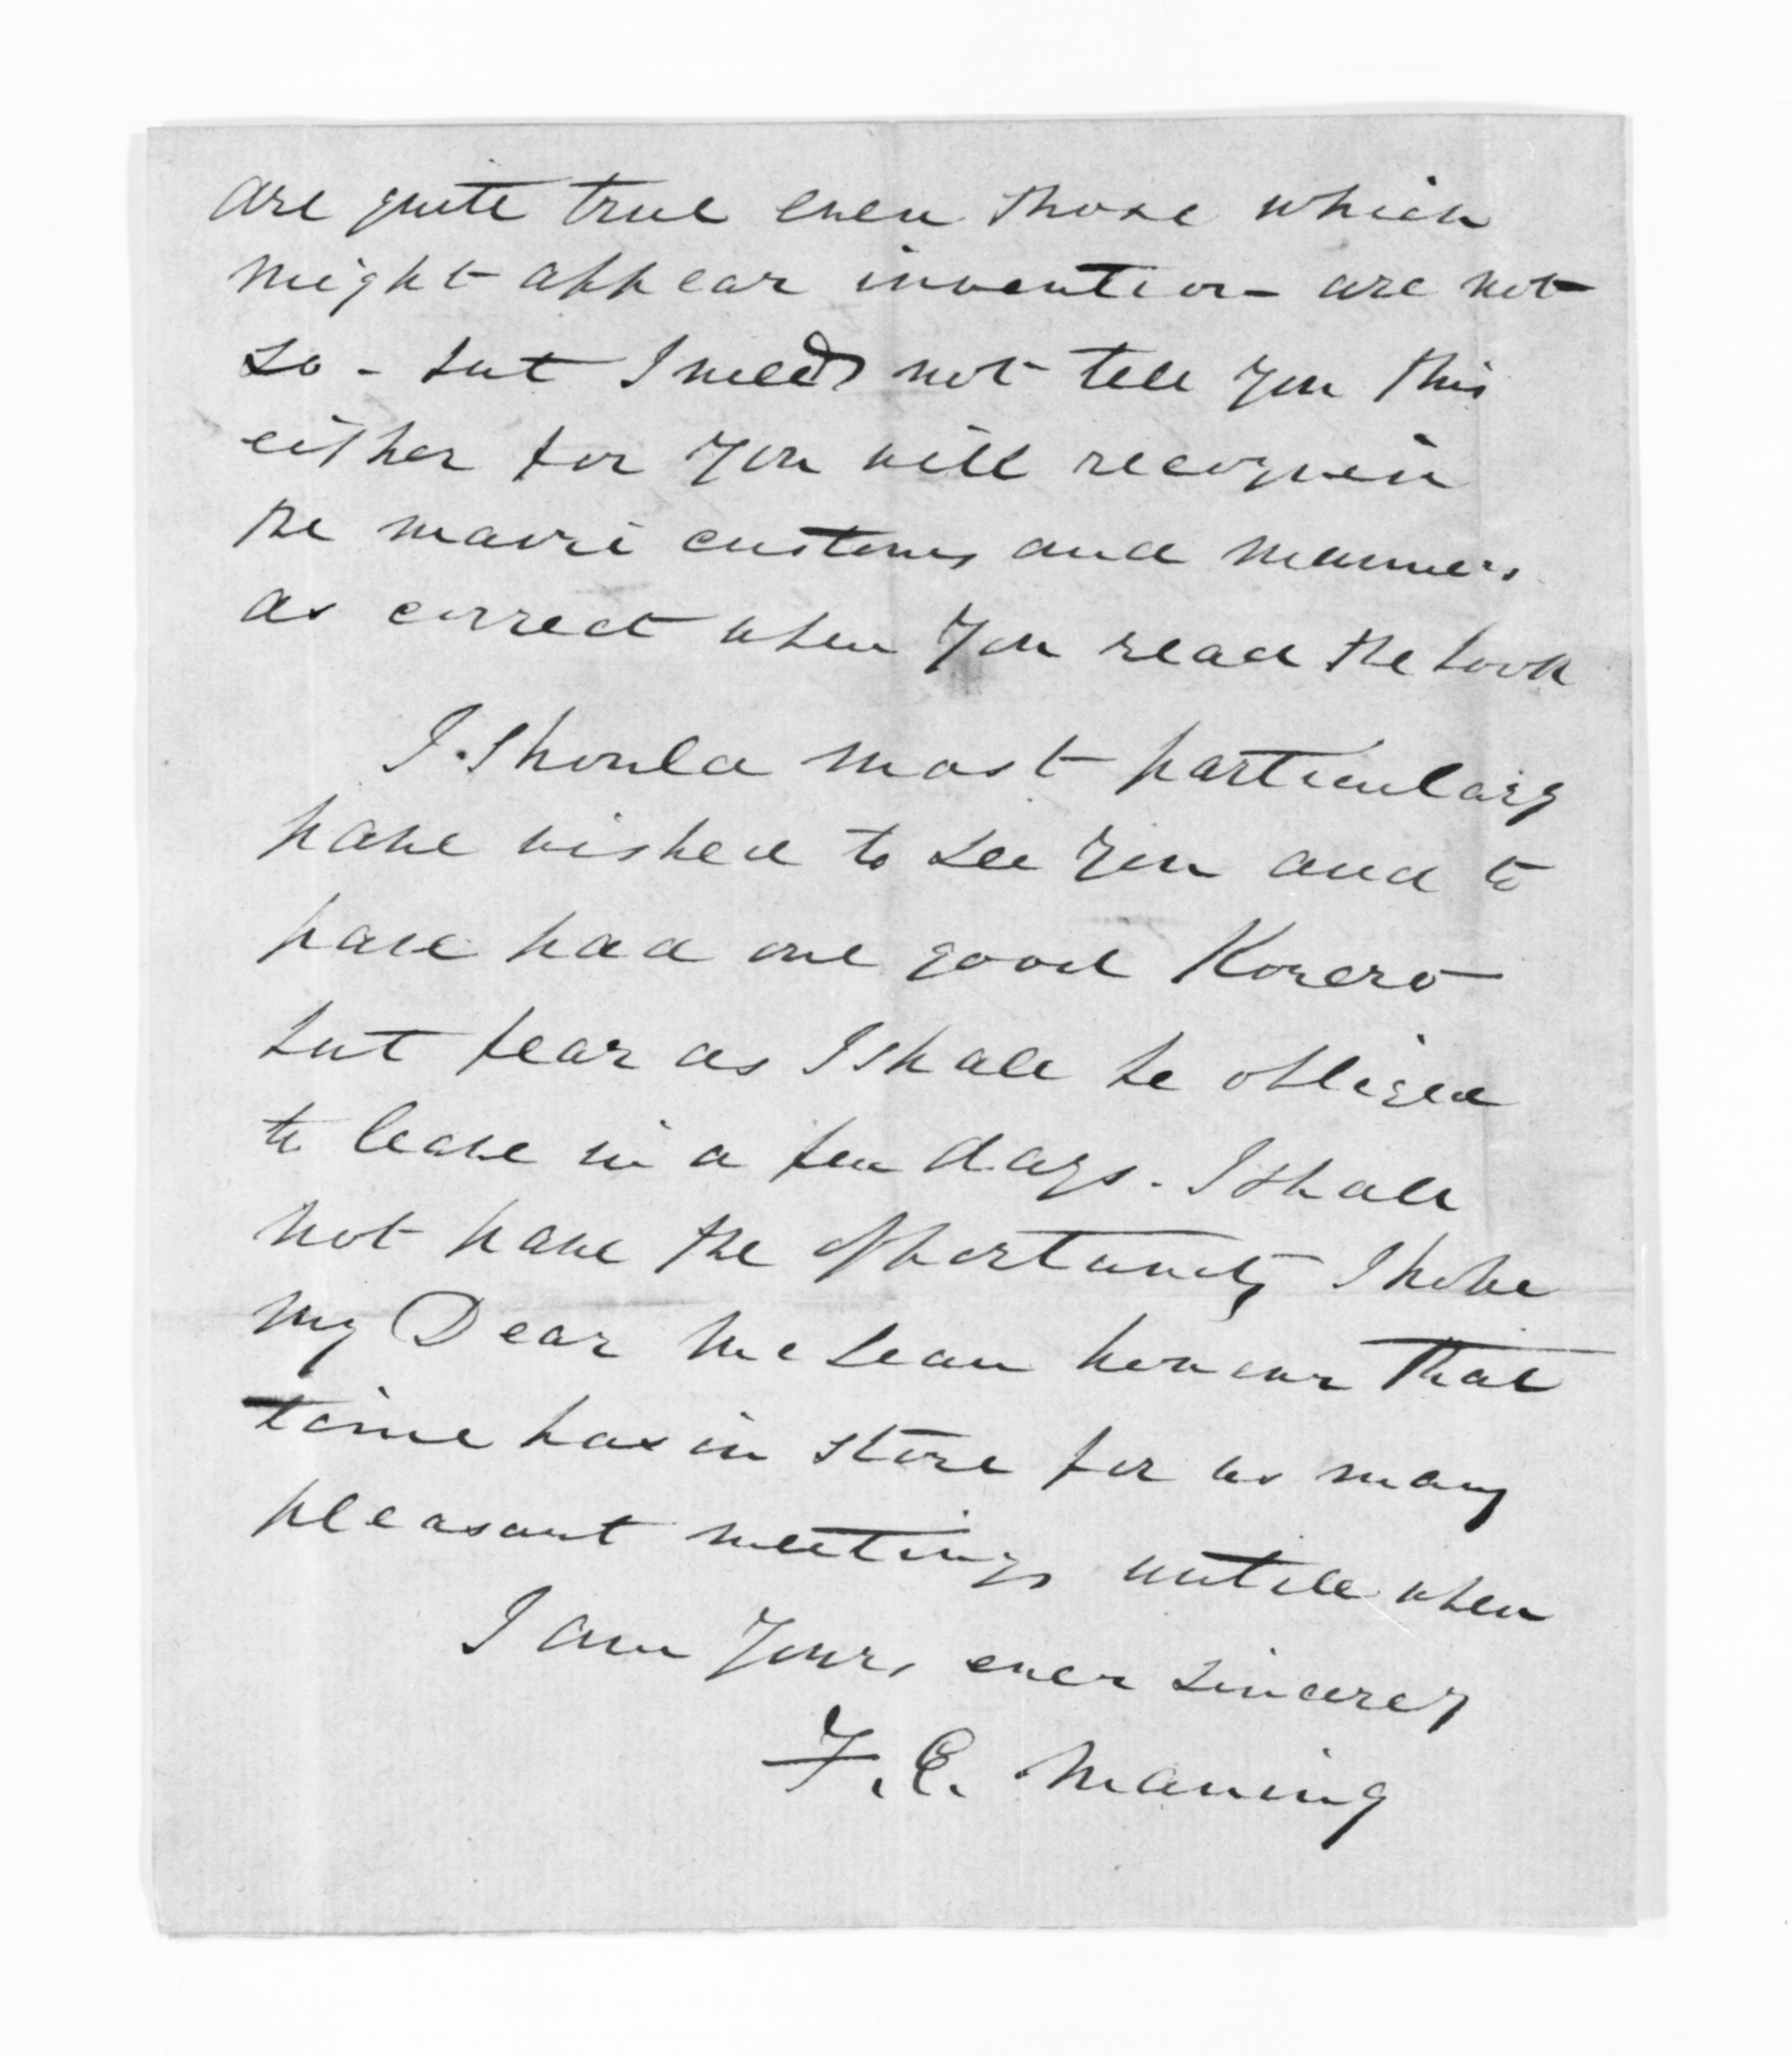 are quite true even those which
might appear invention are not
so - but I need not tell you this
either for you will recognise
the maori customs and manners
as correct when you read the book
I should most particularly
have wished to see you and to
have had one good Korero
but fear as I shall be obliged
to leave in a few days. I shall
not have the opportunity I hope
my Dear McLean however that
time has in store for us many
pleasant meetings untill when
I am yours ever sincerely
F. E. Maning